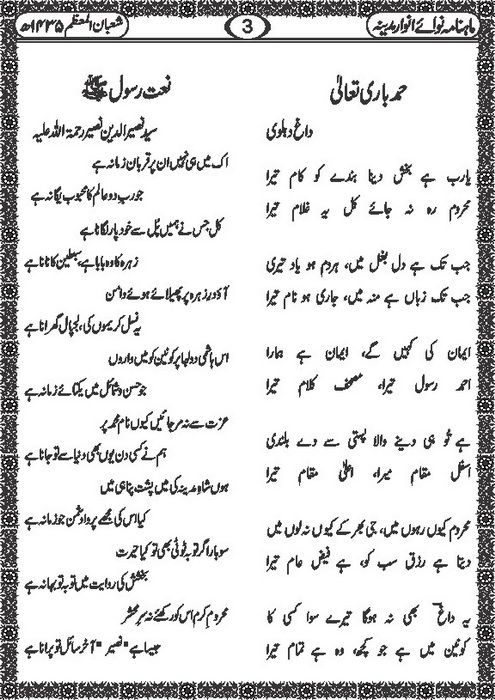 ماہنامہ نوائے انوار مدینہ
3
شعبان المعظم ۱۴۳۵ھ
حمد باری تعالیٰ
داغ دہلوی
یارب ہے بخش دینا بندے کو کام تیرا
محروم رہ نہ جائے کل یہ غلام تیرا
جب تک ہے دل بغل میں، ہردم ہو یاد تیری
جب تک زباں ہے منہ میں، جاری ہو نام تیرا
ایمان کی کہیں گے، ایمان ہے ہمارا
احمد رسول تیرا، مصحف کلام تیرا
ہے تُو ہی دینے والا پستی سے دے بلندی
اسفل مقام میرا، اعلیٰ مقام تیرا
محروم کیوں رہوں میں، جی بھر کے کیوں نہ لوں میں
دیتا ہے رزق سب کو، ہے فیض عام تیرا
یہ داغؔ بھی نہ ہوگا تیرے سوا کسی کا
کونین میں ہے جو کچھ، وہ ہے تمام تیرا
نعت رسول ﷺ
سید نصیر الدین نصیر رحمۃ اللہ علیہ
اک میں ہی نہیں ان پر قربان زمانہ ہے
جو رب دو عالم کا محبوب یگانہ ہے
کل جس نے ہمیں پُل سے خود پار لگانا ہے
زہرہ کا وہ بابا ہے، سبطین کا نانا ہے
آؤ در زہرہ پر پھیلائے ہوئے دامن
یہ نسل کریموں کی، لجپال گھرانا ہے
اس ہاشمی دولہا پر کونین کو میں واروں
جو حسن و شمائل میں یکتائے زمانہ ہے
عزت سے نہ مر جائیں کیوں نام محمد پر
ہم نے کسی دن یوں بھی دنیا سے تو جانا ہے
ہوں شاہ مدینہ کی میں پشت پناہی میں
کیا اس کی مجھے پروا دشمن جو زمانہ ہے
سو بار اگر توبہ ٹوٹی بھی تو کیا حیرت
بخشش کی روایت میں توبہ تو بہانہ ہے
محروم کرم اس کو رکھئے نہ سرِ محشر
جیسا ہے "نصیر" آخر سائل تو پرانا ہے